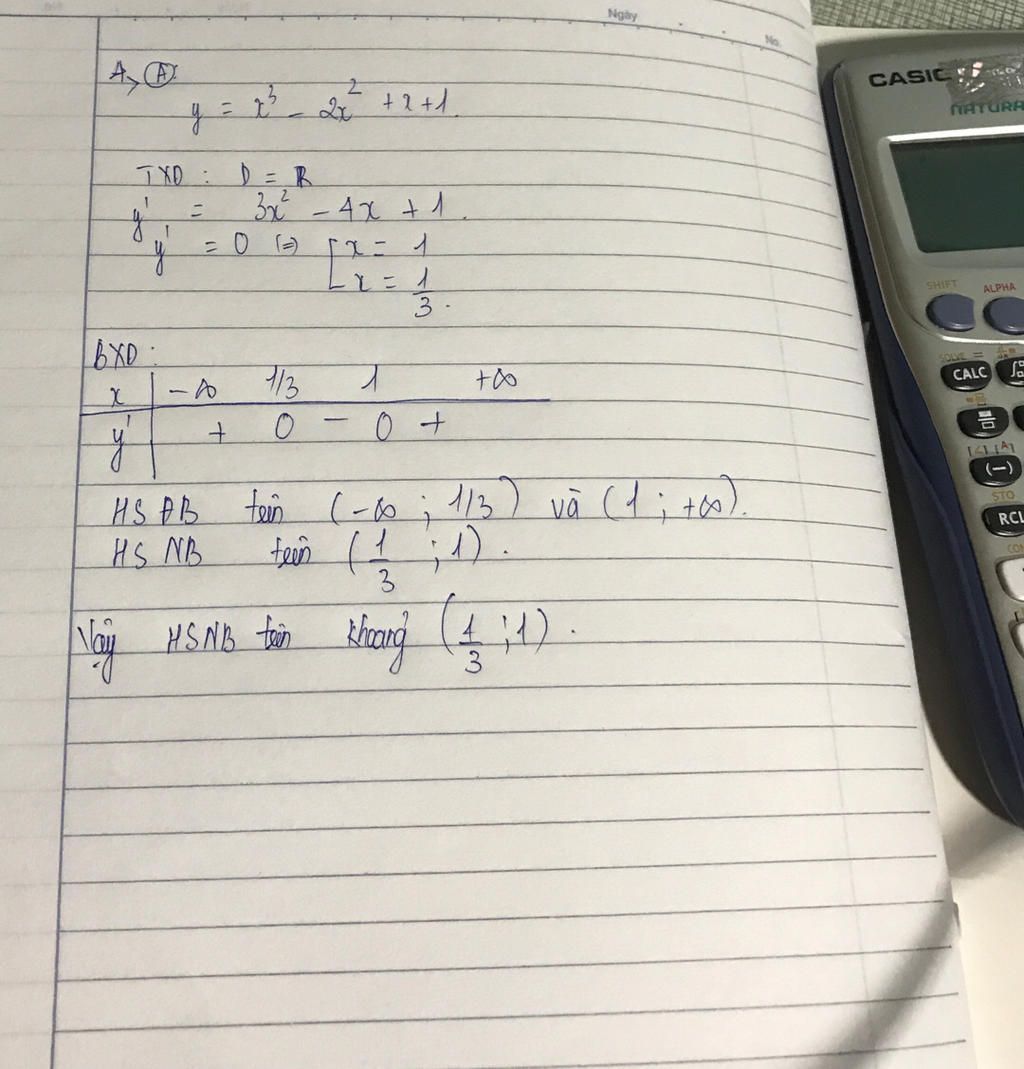 Ngày
No.
A, A:
y = x³ - 2x² + x + 1.
TXD : D = R
y' = 3x² - 4x + 1.
y' = 0 (=) [ x = 1
x = 1/3.
BXD :
x | -∞ 1/3 1 +∞
y' | + 0 - 0 +
HS ĐB trên (-∞ ; 1/3) và (1 ; +∞).
HS NB trên (1/3 ; 1).
Vậy HSNB trên khoảng (1/3 ; 1).
CASIO
NATURA
SHIFT
ALPHA
SOLVE =
CALC
(−)
STO
RCL